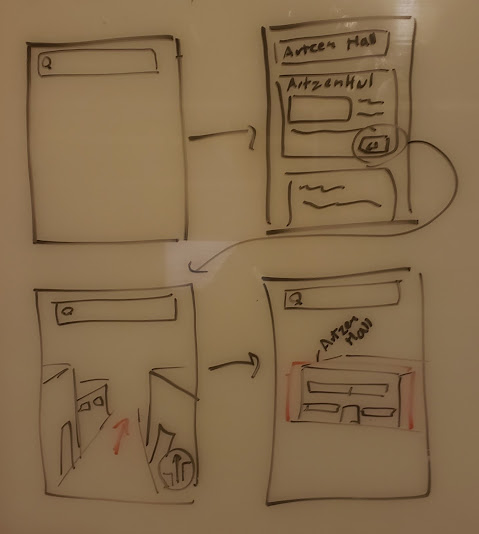 Artzen Hall
Artzen Hall
Go
Artzen
Hall